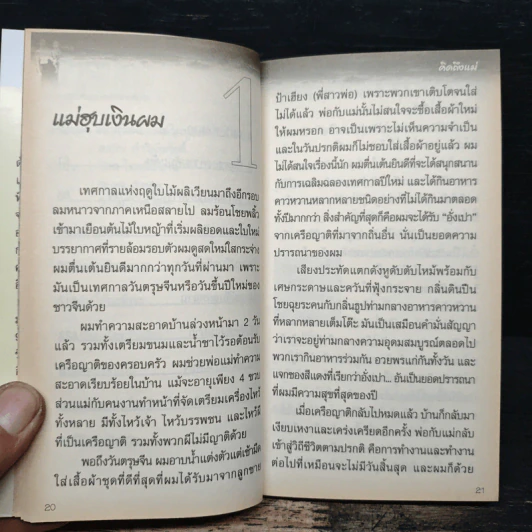 แม่ฮุบเงินผม
1
เทศกาลแห่งฤดูใบไม้ผลิเวียนมาถึงอีกรอบ
ลมหนาวจากภาคเหนือสลายไป ลมร้อนโชยพลิ้ว
เข้ามาเยือนต้นไม้ใบหญ้าที่เริ่มผลิยอดและใบใหม่
บรรยากาศที่รายล้อมรอบตัวผมดูสดใหม่ใสกระจ่าง
ผมตื่นเต้นยินดีมากกว่าทุกวันที่ผ่านมา เพราะ
มันเป็นเทศกาลวันตรุษจีนหรือวันขึ้นปีใหม่ของ
ชาวจีนด้วย
ผมทำความสะอาดบ้านล่วงหน้ามา 2 วัน
แล้ว รวมทั้งเตรียมขนมและน้ำชาไว้รอต้อนรับ
เครือญาติของครอบครัว ผมช่วยพ่อแม่ทำความ
สะอาดเรียบร้อยในบ้าน แม้จะอายุเพียง 4 ขวบ
ส่วนแม่กับคนงานทำหน้าที่จัดเตรียมเครื่องไหว้
ทั้งหลาย มีทั้งไหว้เจ้า ไหว้บรรพชน และไหว้ผี
ที่เป็นเครือญาติ รวมทั้งพวกผีไม่มีญาติด้วย
พอถึงวันตรุษจีน ผมอาบน้ำแต่งตัวแต่เช้ามืด
ใส่เสื้อผ้าชุดที่ดีที่สุดที่ผมได้รับมาจากลูกชาย
20
คิดถึงแม่
ป้าเฮียง (พี่สาวพ่อ) เพราะพวกเขาเติบโตจนใส่
ไม่ได้แล้ว พ่อกับแม่นั้นไม่สนใจจะซื้อเสื้อผ้าใหม่
ให้ผมหรอก อาจเป็นเพราะไม่เห็นความจำเป็น
และในวันปรกติผมก็ไม่ชอบใส่เสื้อผ้าอยู่แล้ว ผม
ไม่ได้สนใจเรื่องนี้นัก ผมตื่นเต้นยินดีที่จะได้สนุกสนาน
กับการเฉลิมฉลองของเทศกาลปีใหม่ และได้กินอาหาร
คาวหวานหลากหลายชนิดอย่างที่ไม่ได้กินมาตลอด
ทั้งปีมากกว่า สิ่งสำคัญที่สุดก็คือผมจะได้รับ “อั่งเปา”
จากเครือญาติที่มาจากถิ่นอื่น นั่นเป็นยอดความ
ปรารถนาของผม
เสียงประทัดแตกดังหูดับตับไหม้พร้อมกับ
เศษกระดาษและควันที่ฟุ้งกระจาย กลิ่นดินปืน
โชยฉุยระคนกับกลิ่นธูปท่ามกลางอาหารคาวหวาน
ที่หลากหลายเต็มโต๊ะ มันเป็นเสมือนคำมั่นสัญญา
ว่าเราจะอยู่ท่ามกลางความอุดมสมบูรณ์ตลอดไป
พวกเรากินอาหารร่วมกัน อวยพรแก่กันทั้งวัน และ
แจกซองสีแดงที่เรียกว่าอั่งเปา... อันเป็นยอดปรารถนา
ที่ผมมีความสุขที่สุดของปี
เมื่อเครือญาติกลับไปหมดแล้ว บ้านก็กลับมา
เงียบเหงาและเคร่งเครียดอีกครั้ง พ่อกับแม่กลับ
เข้าสู่วิถีชีวิตตามปรกติ คือการทำงานและทำงาน
ต่อไปที่เหมือนจะไม่มีวันสิ้นสุด และผมก็ด้วย
21